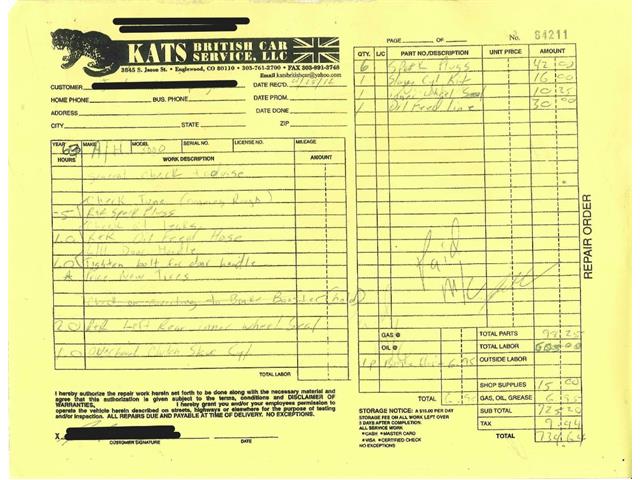 KATS BRITISH CAR SERVICE, LLC
3845 S. Jason St. • Englewood, CO 80110 • 303-761-2700 • FAX 303-991-3748
Email katsbritishcar@yahoo.com
CUSTOMER
DATE REC'D.
HOME PHONE BUS. PHONE DATE PROM.
ADDRESS DATE DONE
CITY STATE ZIP
YEAR MAKE MODEL SERIAL NO. LICENSE NO. MILEAGE
63 A/H 3000
HOURS WORK DESCRIPTION AMOUNT
General Check & advise
Check Tune (running Rough)
.5 R&R Spark Plugs
Check Leaks
1.0 R&R Oil Feed Hose
Door Handle
1.0 Tighten bolt for door handle
New Tires
Check on to Brake Booster
2.0 R&R Left Rear inner wheel Seal
1.0 Overhaul Clutch Slave Cyl
TOTAL LABOR
I hereby authorize the repair work herein set forth to be done along with the necessary material and
agree that this authorization is given subject to the terms, conditions and DISCLAIMER OF
WARRANTIES, I hereby grant you and/or your employees permission to
operate the vehicle herein described on streets, highways or elsewhere for the purpose of testing
and/or inspection. ALL REPAIRS DUE AND PAYABLE AT TIME OF DELIVERY. NO EXCEPTIONS.
X
CUSTOMER SIGNATURE DATE
PAGE OF No. 84211
QTY. L/C PART NO./DESCRIPTION UNIT PRICE AMOUNT
6 Spark Plugs 42 00
1 Slave Cyl Kit 16 00
1 inner wheel Seal 10 25
1 Oil Feed Line 30 00
Paid
M/C
REPAIR ORDER
GAS @ TOTAL PARTS 98.25
OIL @ TOTAL LABOR
OUTSIDE LABOR
SHOP SUPPLIES 15 00
TOTAL 6.95 GAS, OIL, GREASE 6.95
STORAGE NOTICE: A $15.00 PER DAY
STORAGE FEE ON ALL WORK LEFT OVER
3 DAYS AFTER COMPLETION.
ALL SERVICE WORK
•CASH •MASTER CARD
•VISA •CERTIFIED CHECK
NO EXCEPTIONS
SUB TOTAL 725.20
TAX 9.44
TOTAL 734.64